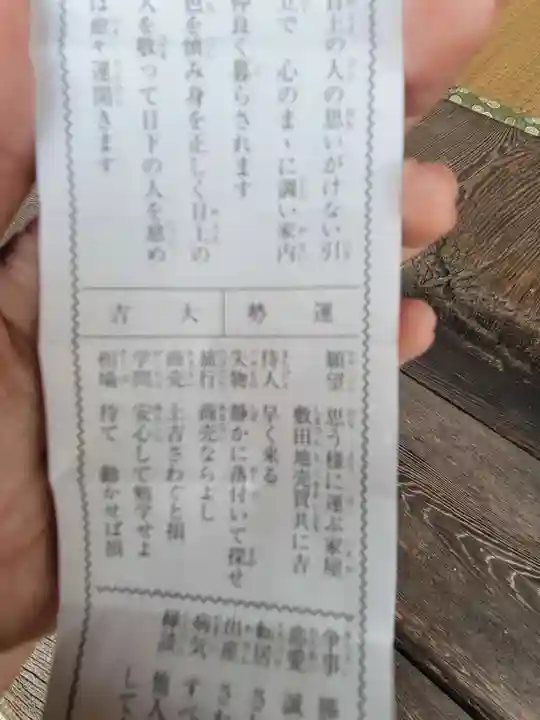 目上の人の思いがけない引
立で 心のまゝに調い家内
仲良く暮らされます
色を慎み身を正しく目上の
人を敬って目下の人を慰め
は愈々運開きます
運勢 大吉
願望 思う様に運ぶ家屋
敷田地売買共に吉
待人 早く来る
失物 静かに落付いて探せ
旅行 商売ならよし
商売 上吉さわぐと損
学問 安心して勉学せよ
相場 待て 動かせば損
争事
恋愛 誠
転居 さし
出産 さわ
病気 すべ
縁談 他人
して